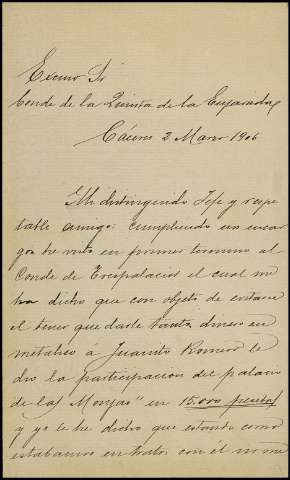 Excmo Sr
Conde de la Quinta de la Enjarada
Cáceres 2 Marzo 1906
Mi distinguido Jefe y respe
table amigo: Cumpliendo su encar
go he visto en primer termino al
Conde de Torrepalacios el cual me
ha dicho que con objeto de evitarse
el tener que darle tanto dinero en
metalico á Juanito Romero le
dio la participacion del palacio
de las Monjas" en 15.000 pesetas
y yo le he dicho que estando como
estabamos en tratos con él no me